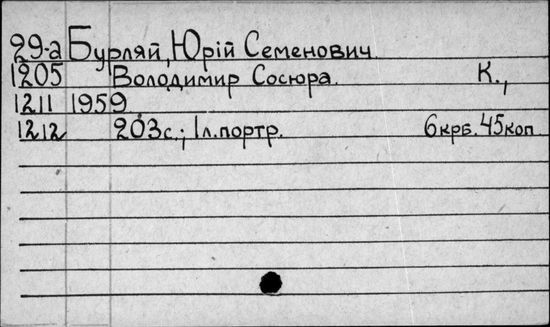 29-а Бурляй, Юрій Семенович.
1205 Володимир Сосюра. К.,
1211 1959
1212 203с.; 1л.портр. 6крб. 45коп